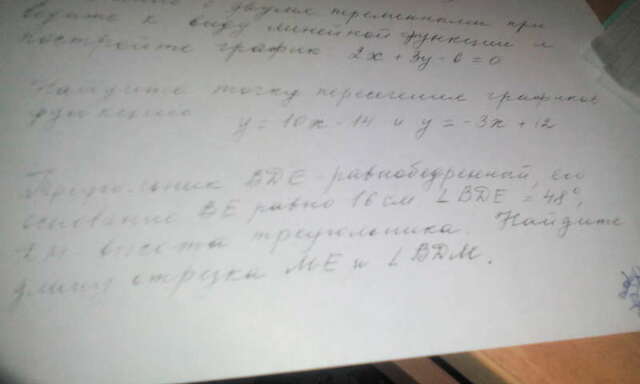 с двумя переменными при
ведите к виду линейной функции и
постройте график 2x + 3y - 6 = 0
Найдите точку пересечения графиков
функцию y = 10x - 14 и y = -3x + 12
Треугольник BDE - равнобедренный, его
основание BE равно 16 см ∠BDE = 48°,
высота треугольника. Найдите
длину отрезка ME и ∠BDM.